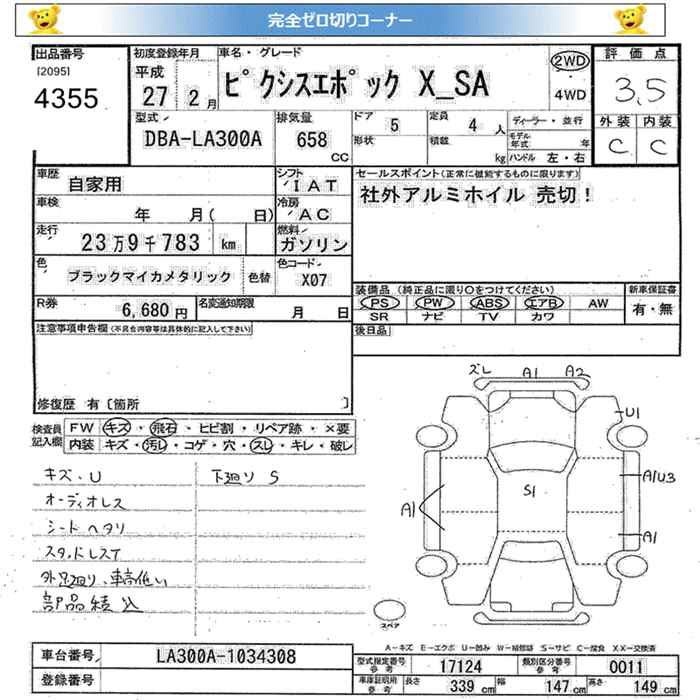 完全ゼロ切りコーナー
出品番号
[2095]
4355
初度登録年月
平成
27 2 月
車名・グレード
ピクシスエポック X_SA
2WD
4WD
評価点
3.5
型式
DBA-LA300A
排気量
658
cc
ドア
5
形状
定員
4 人
積載
kg
ディーラー・並行
モデル年式 年
ハンドル 左・右
外装 内装
C C
車歴
自家用
シフト
IAT
セールスポイント(正常に機能するものに限ります)
社外アルミホイル 売切!
車検
年 月( 日)
冷房
AC
走行
23万9千783 km
燃料
ガソリン
色
ブラックマイカメタリック
色替
色コード
X07
装備品(純正品に限り〇をつけてください)
新車保証書
PS PW ABS エアB AW
有・無
SR ナビ TV カワ
R券
6,680円
名変通知期限
月 日
後日品
注意事項申告欄(不具合内容等は具体的に記入して下さい)
修復歴 有〔箇所 〕
検査員記入欄
FW キズ・飛石・ヒビ割・リペア跡・×要
内装 キズ・汚レ・コゲ・穴・スレ・キレ・破レ
キズ・U
下廻り S
オーディオレス
シートヘタリ
スタッドレスT
外足廻り、車高低い
部品積込
ズレ A1 A2
U1
S1
A1U3
A1
A1
スペア
A-キズ E-エクボ U-凹み W-補修跡 S-サビ C-腐食 XX-交換済
車台番号
LA300A-1034308
登録番号
型式指定番号 参考
17124
類別区分番号 参考
0011
車庫証明用 参考
長さ 339 cm
幅 147 cm
高さ 149 cm